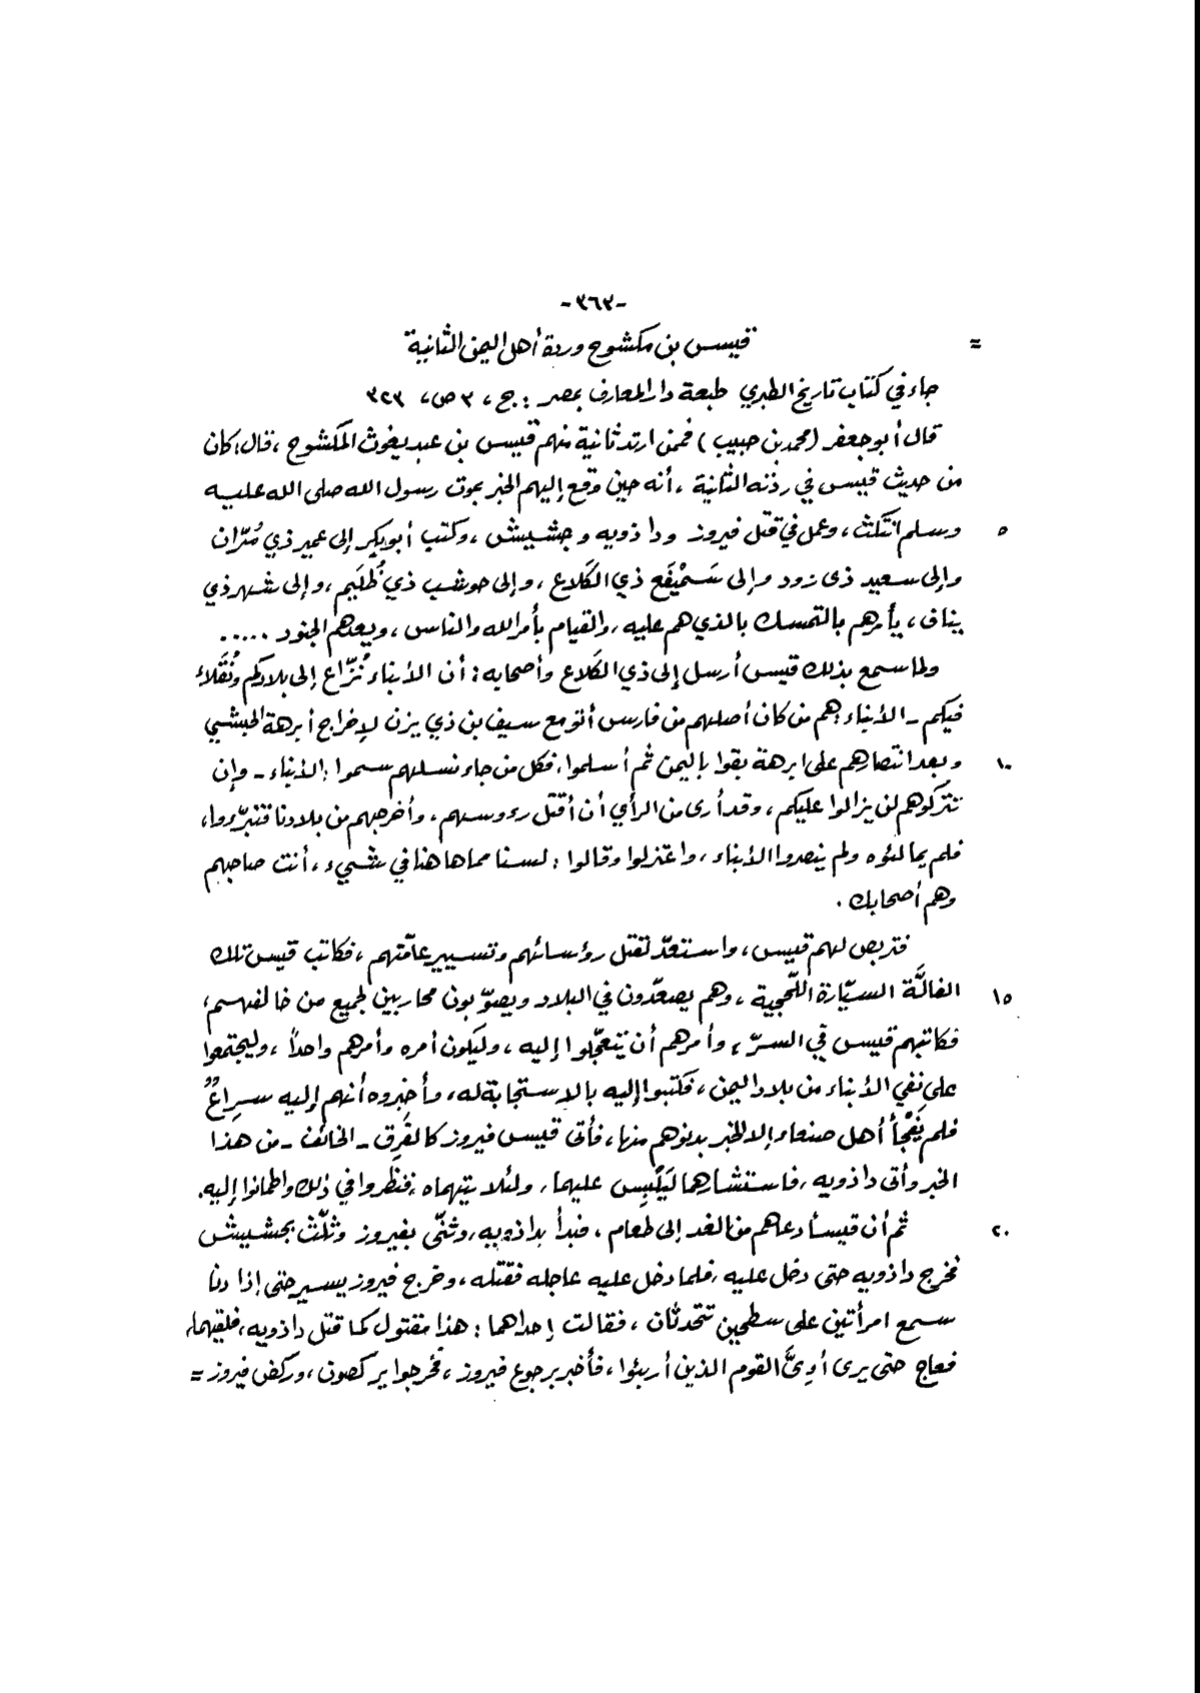 -٣٦٣-
= قيس بن مكشوح وردة أهل اليمن الثانية
جاء في كتاب تاريخ الطبري طبعة دار المعارف بمصر : ج ، ٣ ص ، ٣٢٣
قال أبو جعفر (محمد بن حبيب) فممن ارتد ثانية منهم قيس بن عبد يغوث المكشوح ، قال : كان
من حديث قيس في ردّته الثانية ، أنه حين وقع إليهم الخبر بموت رسول الله صلى الله عليه
٥ وسلم انتكث ، وعمل في قتل فيروز وداذويه وجشيش ، وكتب أبو بكر إلى عمير ذي مُرّان
وإلى سعيد ذى زود وإلى سَمْيفَع ذي الكَلاع ، وإلى حوشب ذي ظُلَيم ، وإلى شهر ذي
يناف ، يأمرهم بالتمسك بالذي هم عليه ، والقيام بأمر الله والناس ، ويعدهم الجنود .....
ولما سمع بذلك قيس أرسل إلى ذي الكَلاع وأصحابه : أن الأبناء نُزّاع إلى بلادكم ونُقَلاء
فيكم - الأبناء : هم من كان أصلهم من فارس أتو مع سيف بن ذي يزن لإخراج أبرهة الحبشي
١٠ وبعد انتصارهم على ابرهة بقوا باليمن ثم أسلموا ، فكل من جاء نسلهم سموا : الأبناء - وإن
تتركوهم لن يزالوا عليكم ، وقد أرى من الرأي أن أقتل رءوسهم ، وأخرجهم من بلادنا فتبرّءوا ،
فلم يمالئوه ولم ينصروا الأبناء ، واعتزلوا وقالوا : لسنا مما هاهنا في شيء ، أنت صاحبهم
وهم أصحابك .
فتربص لهم قيس ، واستعدّ لقتل رؤسائهم وتسيير عامّتهم ، فكاتب قيس تلك
١٥ الفالَّة السيّارة اللّحجية ، وهم يصعّدون في البلاد ويصوّبون محاربين لجميع من خالفهم ،
فكاتبهم قيس في السرّ ، وأمرهم أن يتعجّلوا إليه ، وليكون أمره وأمرهم واحداً ، وليجتمعوا
على نفي الأبناء من بلاد اليمن ، فكتبوا إليه بالاستجابة له ، وأخبروه أنهم إليه سِراعٌ
فلم يَفْجأ أهل صنعاء إلا الخبر بدنوهم منها ، فأتى قيس فيروز كالفَرِق - الخائف - من هذا
الخبر وأتى داذويه ، فاستشارهما لِيَلْبِس عليهما ، ولئلا يتهماه ، فنظروا في ذلك واطمانوا إليه .
٢٠ ثم أن قيساً دعاهم من الغد إلى طعام ، فبدأ بداذويه ، وثنّى بفيروز وثلّث بجشيش
فخرج داذويه حتى دخل عليه ، فلما دخل عليه عاجله فقتله ، وخرج فيروز يسير حتى إذا دنا
سمع امرأتين على سطحين تتحدثان ، فقالت إحداهما : هذا مقتول كما قتل داذويه ، فلقيهما ،
فعاج حتى يرى أوِىَّ القوم الذين أربئوا ، فأُخبر برجوع فيروز ، فخرجوا يركضون ، وركض فيروز =